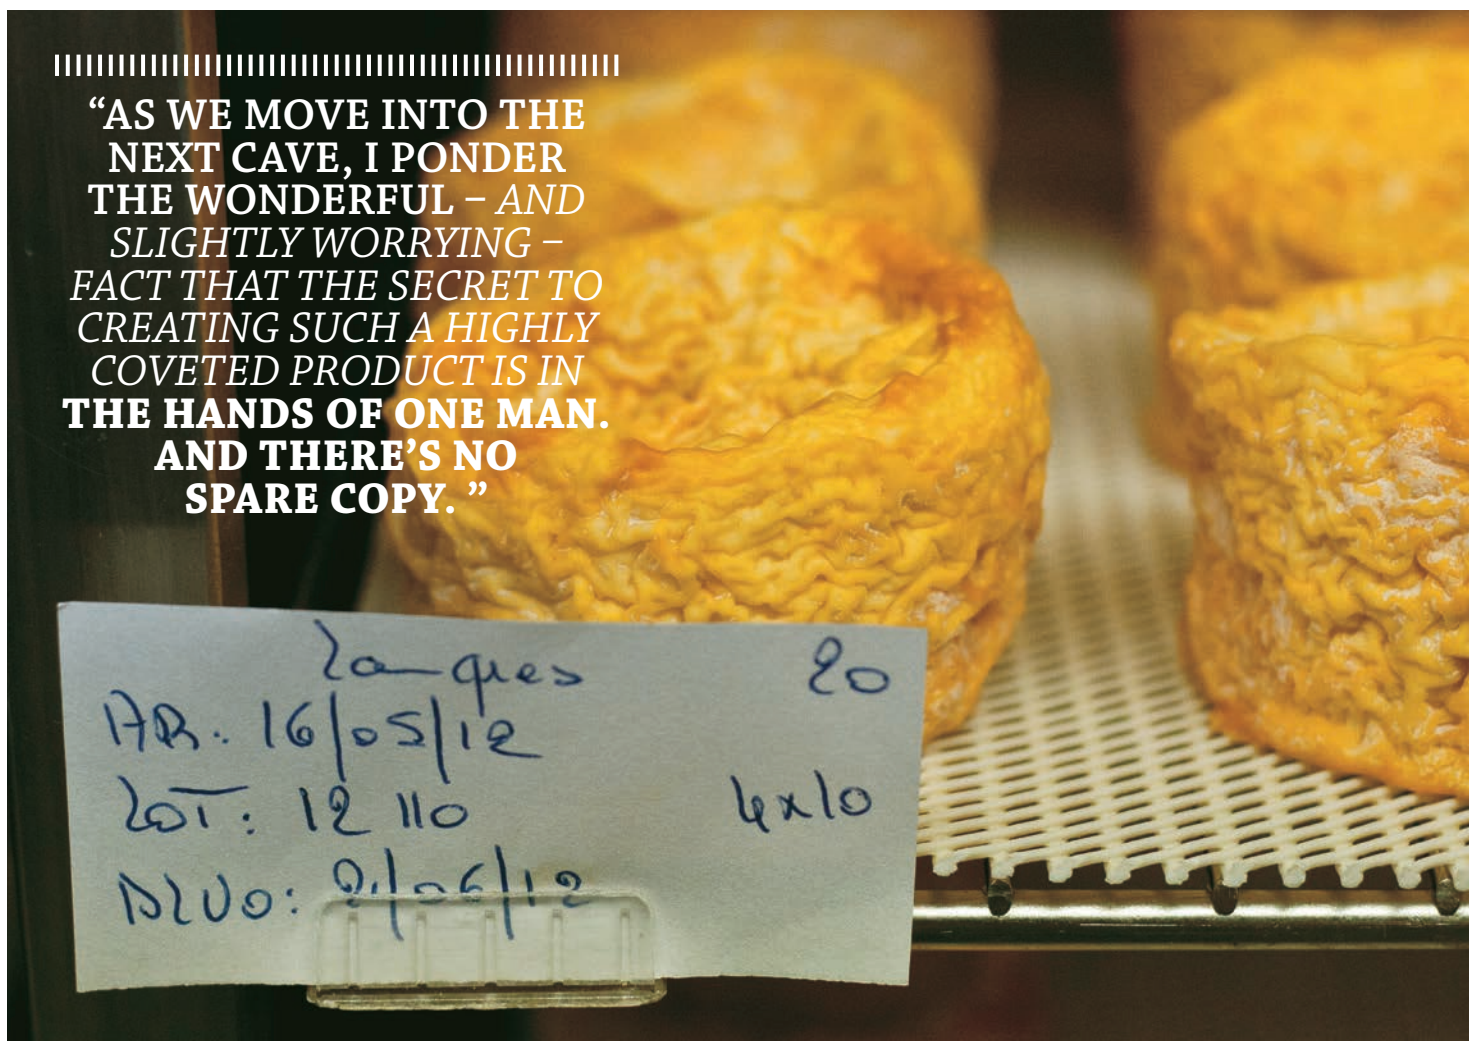 “AS WE MOVE INTO THE
NEXT CAVE, I PONDER
THE WONDERFUL – AND
SLIGHTLY WORRYING –
FACT THAT THE SECRET TO
CREATING SUCH A HIGHLY
COVETED PRODUCT IS IN
THE HANDS OF ONE MAN.
AND THERE’S NO
SPARE COPY. ”
Langres 20
AR: 16/05/12
LOT: 12 110 4x10
DLUO: /06/12